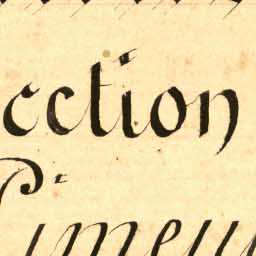 cction
Pimeu